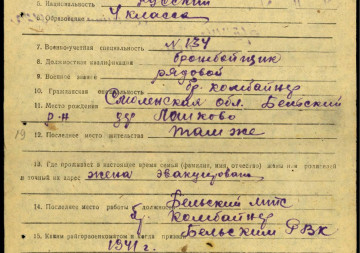 5. Национальность русский
6. Образование 4 класса
7. Военно-учетная специальность №134
8. Должностная квалификация бронебойщик
9. Военное звание рядовой
10. Гражданская специальность бр. комбайнер
11. Место рождения Смоленская обл. Бельский
р-н дер Пашково
12. Последнее место жительства там же
13. Где проживает в настоящее время семья (фамилия, имя, отчество) жены или родителей
и точный их адрес жена эвакуирована
14. Последнее место работы и должность Бельский мтс
бр. комбайнер
15. Каким райгорвоенкоматом и когда призван Бельским РВК
1941 г.